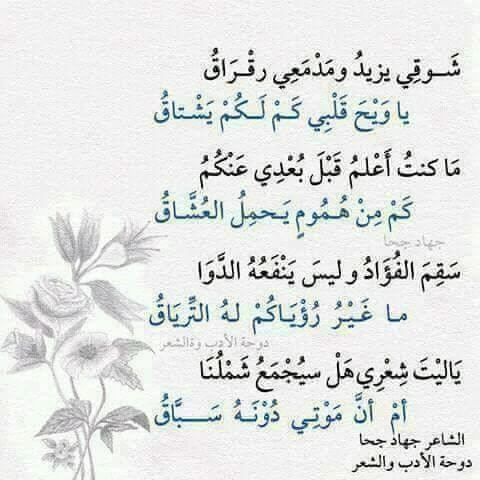 شَـوقِي يزيدُ ومَدْمَعِي رقْـرَاقُ
يا وَيْحَ قَلْبِي كَـمْ لَـكُمْ يَشْـتاقُ
مَا كنتُ أَعْلمُ قَبْلَ بُعْدِي عَنْكُمُ
كَمْ مِنْ هُـمُومٍ يَـحمِلُ العُشَّـاقُ
جهاد جحا
سَقِمَ الفُؤَادُ و ليسَ يَنْفَعُهُ الدَّوَا
مـا غَـيْـرُ رُؤْيَـاكُمْ لـهُ التِّريَاقُ
دوحة الأدب وةالشعر
يَالَيْتَ شِعْرِي هَلْ سيُجْمَعُ شَمْلُنَا
أمْ أنَّ مَوْتِي دُونَـهُ سَـــبَّاقُ
الشاعر جهاد جحا
دوحة الأدب والشعر